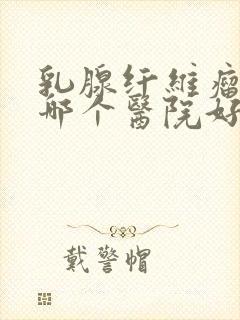 乳腺纤維瘤
哪个醫院好
戴警帽